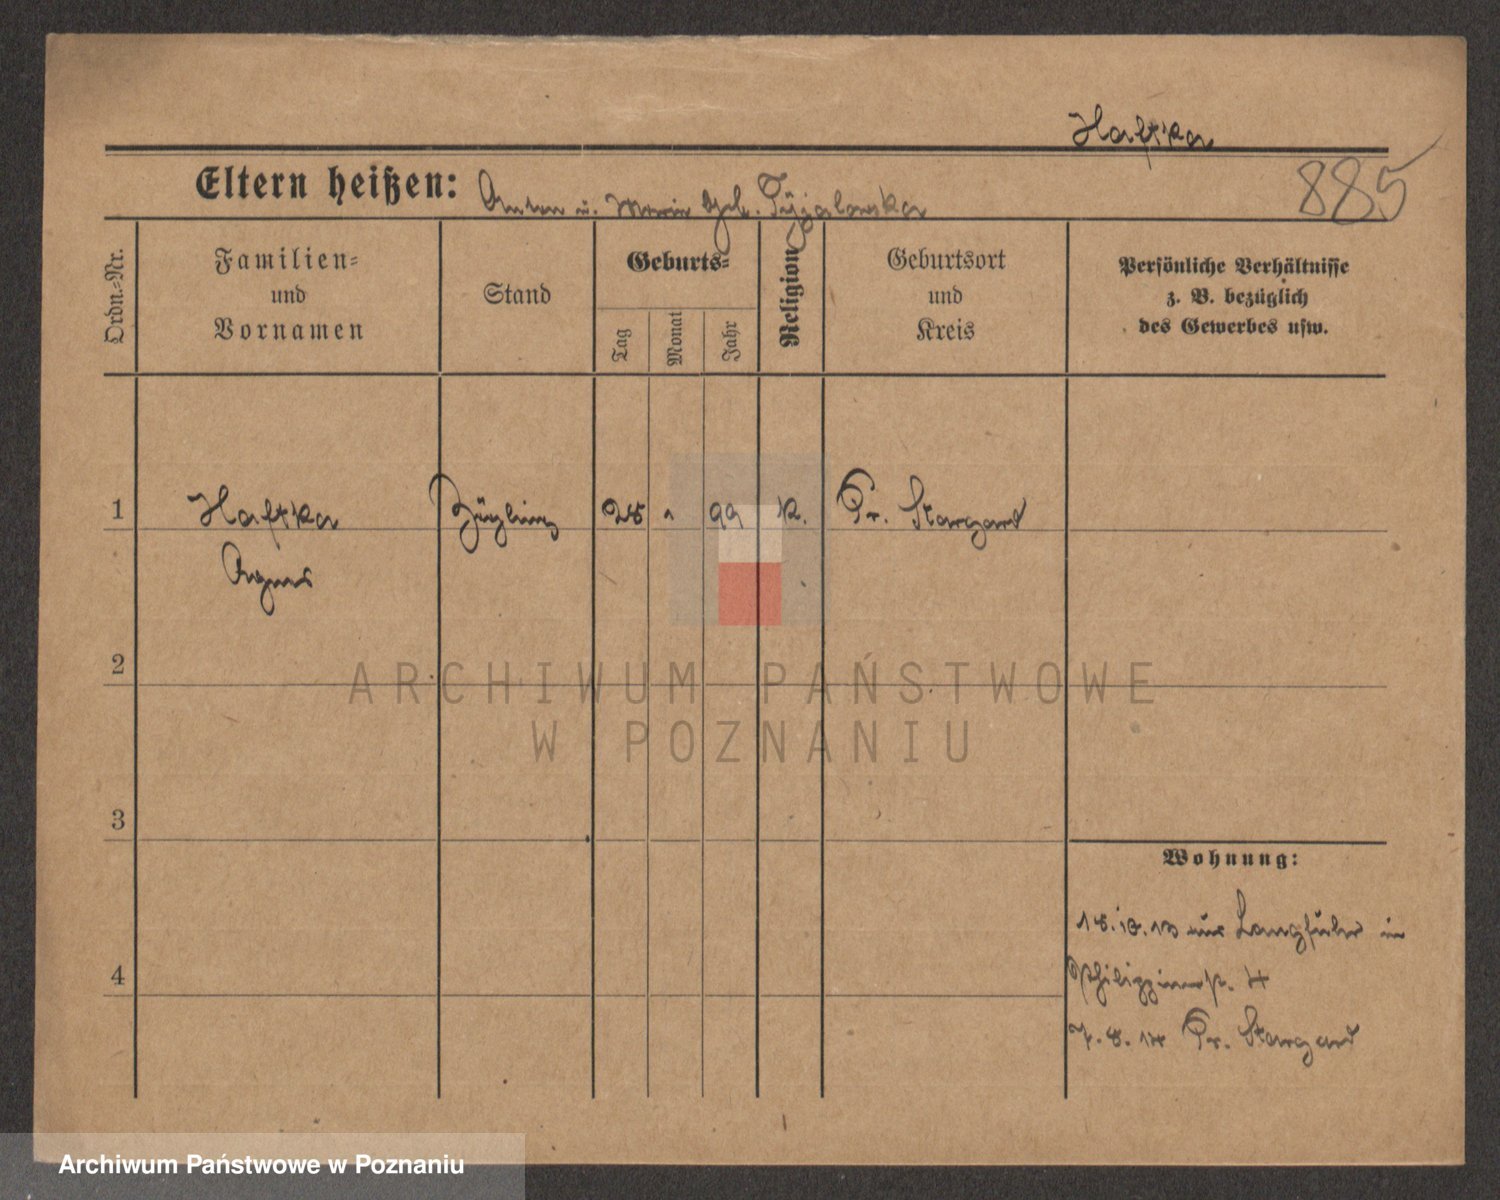 Haftka
885
Eltern heißen: Anton u. Marie geb.
Ordn.-Nr.
Familien-
und
Vornamen
Stand
Geburts-
Tag
Monat
Jahr
Religion
Geburtsort
und
Kreis
Persönliche Verhältnisse
z. B. bezüglich
des Gewerbes usw.
1 Haftka Zögling 28 1 99 k. Pr. Stargard
Agnes
2
ARCHIWUM PAŃSTWOWE
W POZNANIU
3
Wohnung:
18.10.13 aus Langfuhr in
4
Philippinenstr. 4
7.8.14 Pr. Stargard
Archiwum Państwowe w Poznaniu